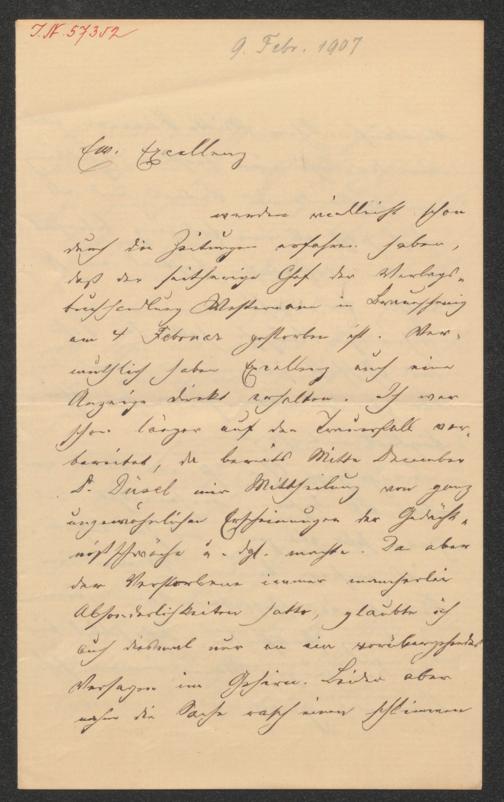 J.N. 57352
9. Febr. 1907
Ew. Excellenz
werden vielleicht schon
durch die Zeitungen erfahren haben,
daß der seitherige Chef der Verlags-
buchhandlung Westermann in Braunschweig
am 4 Februar gestorben ist. Ver-
muthlich haben Excellenz auch eine
Anzeige direkt erhalten. Ich war
schon länger auf den Trauerfall vor-
bereitet, da bereits Mitte Dezember
Dr. Düsel mir Mittheilung von ganz
ungewöhnlichen Erscheinungen der Gedächt-
nißschwäche u. dgl. machte. Da aber
der Verstorbene immer mancherlei
Absonderlichkeiten hatte, glaubte ich
auch diesmal nur an ein vorübergehendes
Versagen im Gehirn. Leider aber
nahm die Sache rasch einen schlimmen